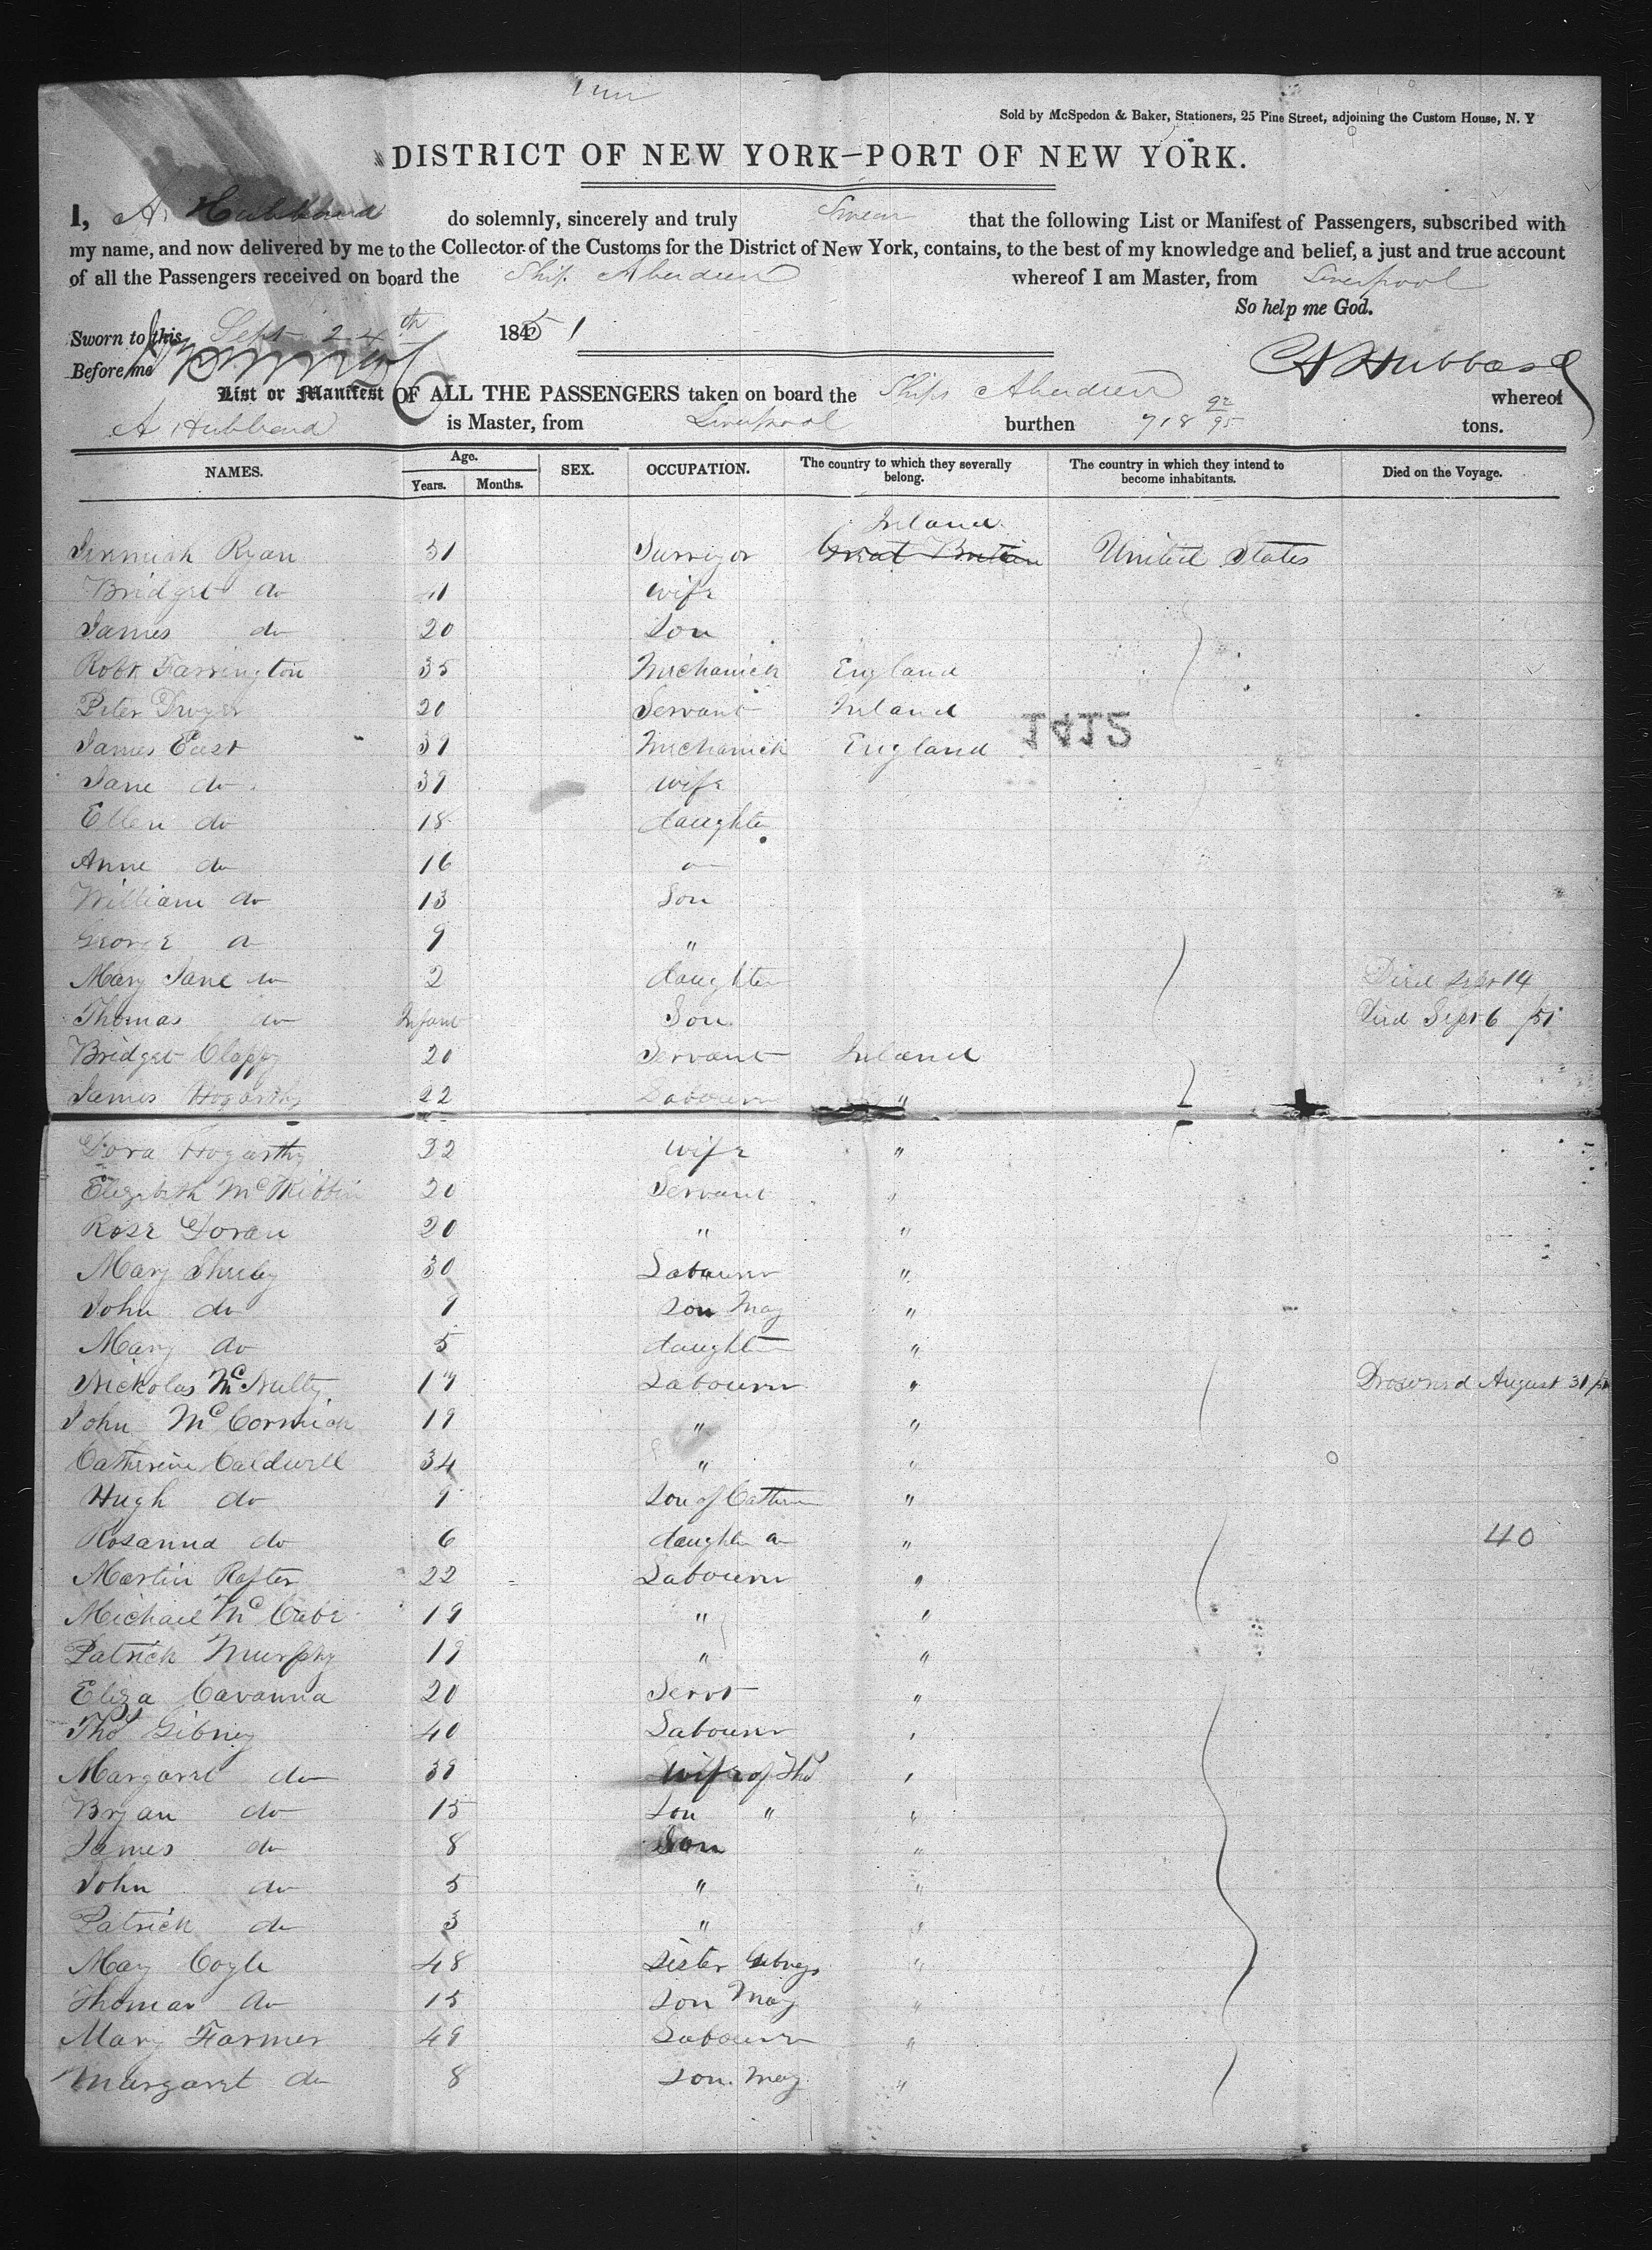 Sold by McSpedon & Baker, Stationers, 25 Pine Street, adjoining the Custom House, N. Y
DISTRICT OF NEW YORK—PORT OF NEW YORK.
I, A. Hubbard do solemnly, sincerely and truly Swear that the following List or Manifest of Passengers, subscribed with
my name, and now delivered by me to the Collector of the Customs for the District of New York, contains, to the best of my knowledge and belief, a just and true account
of all the Passengers received on board the Ship Aberdeen whereof I am Master, from Liverpool
So help me God.
Sworn to this Sept 24th 1851
Before me
A Hubbard
List or Manifest OF ALL THE PASSENGERS taken on board the Ships Aberdeen whereof
A Hubbard is Master, from Liverpool burthen 718 92/95 tons.
NAMES. Age. Years. Months. SEX. OCCUPATION. The country to which they severally belong. The country in which they intend to become inhabitants. Died on the Voyage.
Ireland
Jermiah Ryan 51 Surviyor Great Britain United States
Bridget do 41 wife
James do 20 Son
Robt Farrington 35 Mechanick England
Peter Dwyer 20 Servant Ireland
1412
James East 39 Mechanick England
Jane do 39 wife
Ellen do 18 daughter
Anne do 16 do
William do 13 Son
George do 9 "
Mary Jane do 2 daughter Died Sept 14
Thomas do Infant Son Died Sept 6 /51
Bridget Clappy 20 Servant Ireland
James Hogarthy 22 Labourer "
Dora Hogarthy 22 wife "
Elizibith McKibbin 20 Servant "
Rose Doran 20 " "
Mary Sheely 30 Labourer "
John do 9 son Mary "
Mary do 5 daughter "
Nickolas McNulty 19 Labourer " Drownd August 31/51
John McCormick 19 " "
Catherine Caldwell 34 " "
Hugh do 9 Son of Cathrin "
Rosanna do 6 daughter do " 40
Martin Rafter 22 Labourer "
Michael McCabe 19 " "
Patrick Murphy 19 " "
Eliza Cavanna 20 Servt "
Thos Gibney 40 Labourer "
Margaret do 39 wife of Thos "
Bryan do 15 Son " "
James do 8 Son "
John do 5 " "
Patrick do 3 " "
Mary Cogle 48 Sister Gibneys "
Thomas do 15 Son Mary "
Mary Farmer 49 Labourer "
Margaret do 8 Son Mary "